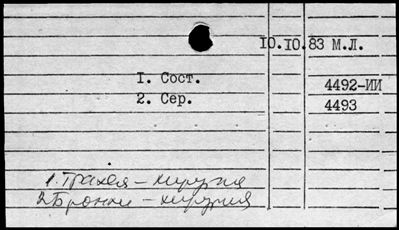 10.10.83 М.Л.
1. Сост. 4492-ИИ
2. Сер. 4493
1. Трахея – хирургия
2. Бронхи – хирургия